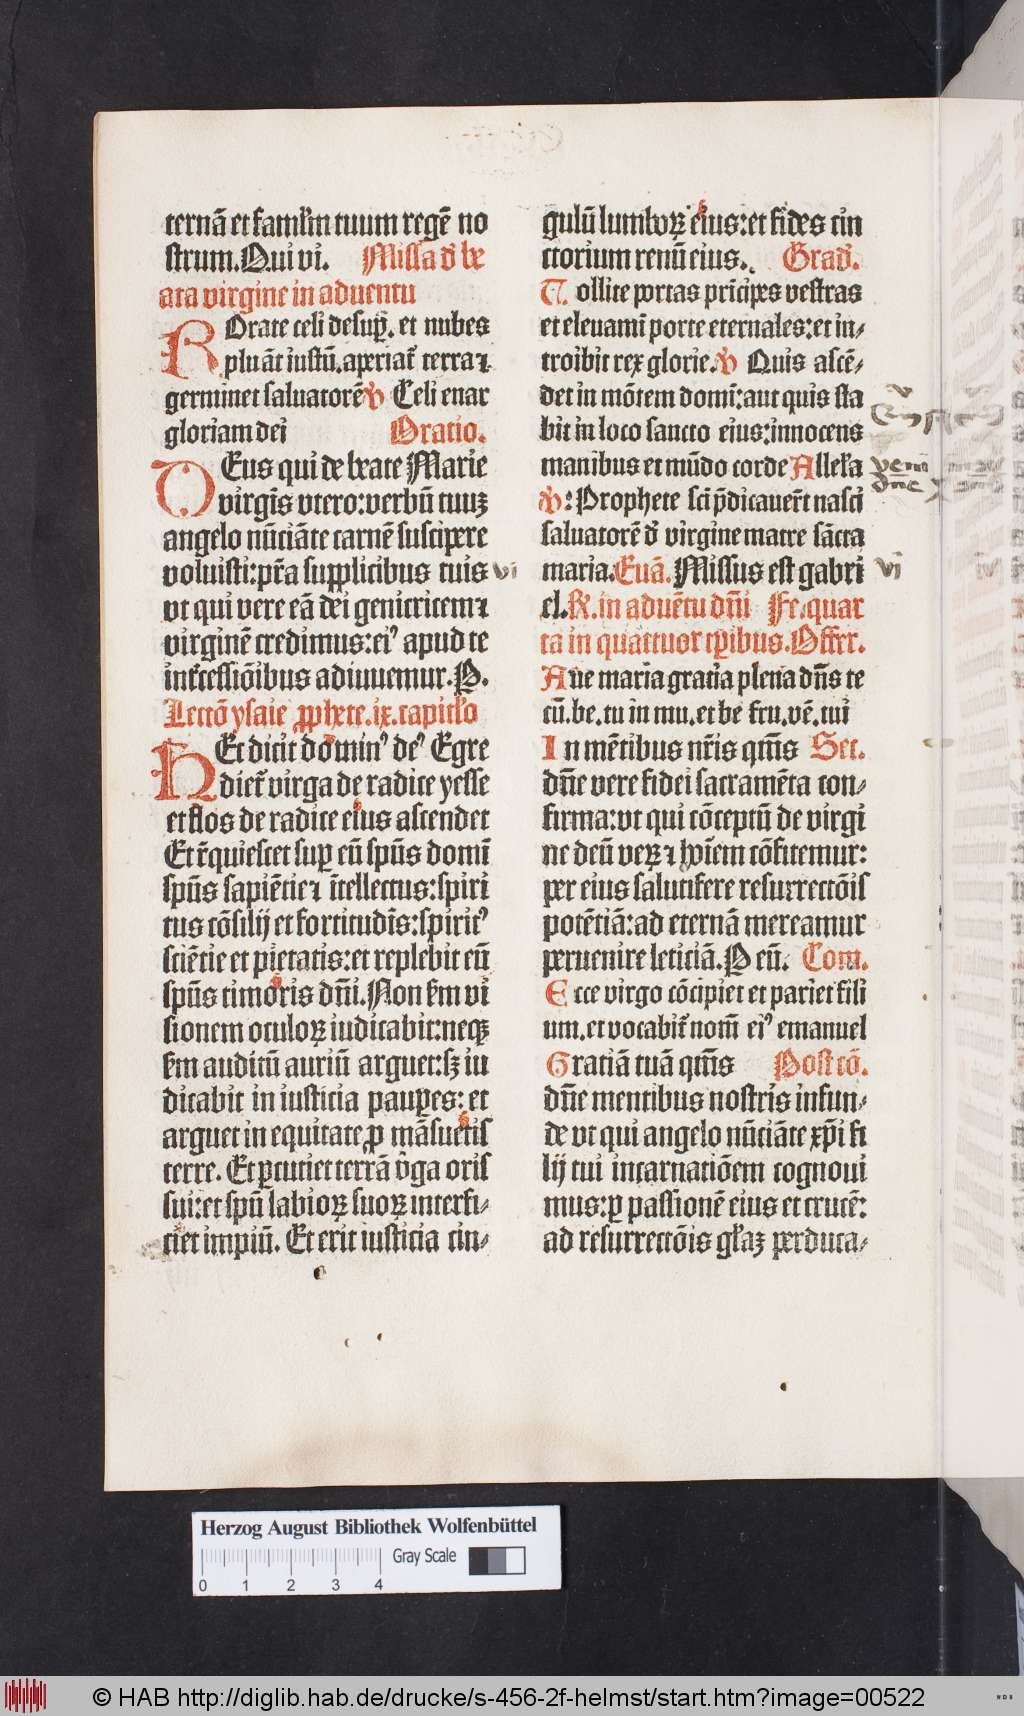 ternã et famłm tuum regẽ no
strum. Qui vi. Missa dʼ be
ata virgine in aduentu
ROrate celi desuꝑ. et nubes
pluãt iustũ. aperiatʼ terra ⁊
germinet saluatorẽ ℣ Celi enar
gloriam dei Oratio.
DEus qui de beate Marie
virgĩs vtero: verbũ tuuꝫ
angelo nũciãte carnẽ suscipere
voluisti: pr̃a supplicibus tuis
vt qui vere eã dei genitricem ⁊
virginẽ credimus: eiꝰ apud te
int̃cessiõibus adiuuemur. P.
Lectõ ysaie ꝓphete. ix. capitło
HEc dicit dominꝰ deꝰ Egre
dietʼ virga de radice yesse
et flos de radice eius ascendet
Et r̃quiescet suꝑ eũ spũs domĩ
spũs sapiẽtie ⁊ ĩtellectus: spiri
tus cõsilij et fortitudĩs: spiritꝰ
sciẽtie et pietatis: et replebit eũ
spũs timoris dñi. Non s̃m vi
sionem oculoꝝ iudicabit: neqꝫ
s̃m auditũ auriũ arguet: sꝫ iu
dicabit in iusticia pauꝑes: et
arguet in equitate ꝓ mãsuetis
terre. Et ꝑcutiet terrã v̾ga oris
sui: et spũ labioꝝ suoꝝ interfi⸗
ciet impiũ. Et erit iusticia cin⸗
vi
gulũ lumboꝝ eius: et fides cin
ctorium renũ eius. Gradʼ.
Tollite portas prĩcipes vestras
et eleuamĩ porte eternales: et in⸗
troibit rex glorie. ℣ Quis ascẽ⸗
det in mõtem domĩ: aut quis sta
bit in loco sancto eius: innocens
manibus et mũdo corde Alleła
℣: Prophete sc̃i p̃dicauer̃t nasci
saluatorẽ dʼ virgine matre sãcta
maria. Euã. Missus est gabri
el. R. in aduẽtu dñi Fe. quar
ta in quattuor tꝑibus. Offer.
Aue maria gracia plena dñs te
cũ. be. tu in mu. et be fru. vẽ. tui
In mẽtibus nr̃is q̃ms Sec.
dñe vere fidei sacramẽta con⸗
firma: vt qui cõceptũ de virgi
ne deũ veꝝ ⁊ hoĩem cõfitemur:
per eius salutifere resurrectõis
potẽtiã: ad eternã mereamur
peruenire leticiã. P eũ. Com.
Ecce virgo cõcipiet et pariet fili
um. et vocabitʼ nom̃ eiꝰ emanuel
Graciã tuã q̃ms Post cõ.
dñe mentibus nostris infun⸗
de vt qui angelo nũciãte xp̃i fi
lij tui incarnatiõem cognoui
mus: ꝑ passionẽ eius et crucẽ:
ad resurrectõis głaꝫ perduca⸗
vi
Herzog August Bibliothek Wolfenbüttel
Gray Scale
0 1 2 3 4
© HAB http://diglib.hab.de/drucke/s-456-2f-helmst/start.htm?image=00522